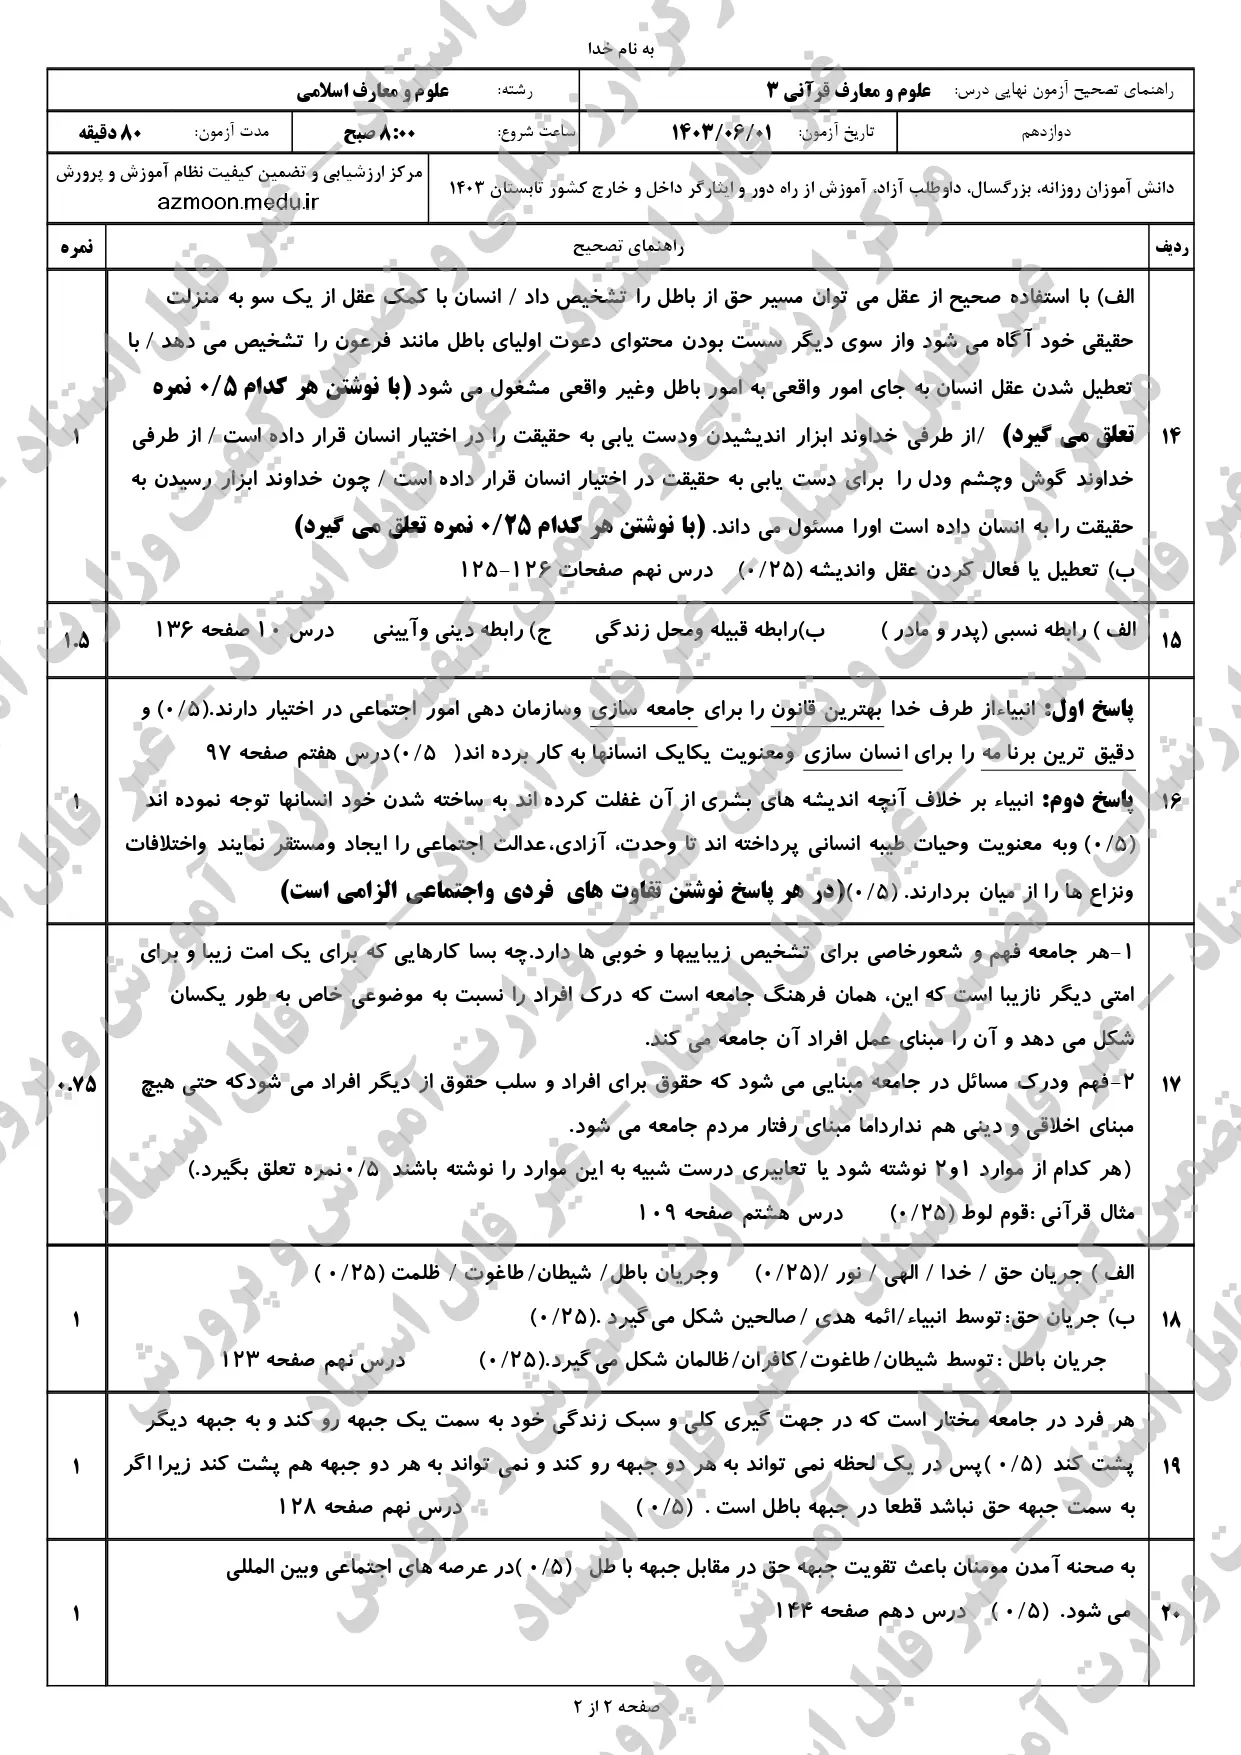 به نام خدا
راهنمای تصحیح آزمون نهایی درس: علوم و معارف قرآنی ۳
رشته: علوم و معارف اسلامی
دوازدهم
تاریخ آزمون: ۱۴۰۳/۰۶/۰۱
ساعت شروع: ۸:۰۰ صبح
مدت آزمون: ۸۰ دقیقه
دانش آموزان روزانه، بزرگسال، داوطلب آزاد، آموزش از راه دور و ایثارگر داخل و خارج کشور تابستان ۱۴۰۳
مرکز ارزشیابی و تضمین کیفیت نظام آموزش و پرورش
azmoon.medu.ir
ردیف
راهنمای تصحیح
نمره
۱۴
الف) با استفاده صحیح از عقل می توان مسیر حق از باطل را تشخیص داد / انسان با کمک عقل از یک سو به منزلت
حقیقی خود آگاه می شود واز سوی دیگر سست بودن محتوای دعوت اولیای باطل مانند فرعون را تشخیص می دهد / با
تعطیل شدن عقل انسان به جای امور واقعی به امور باطل وغیر واقعی مشغول می شود (با نوشتن هر کدام ۰/۵ نمره
تعلق می گیرد) /از طرفی خداوند ابزار اندیشیدن ودست یابی به حقیقت را در اختیار انسان قرار داده است / از طرفی
خداوند گوش وچشم ودل را برای دست یابی به حقیقت در اختیار انسان قرار داده است / چون خداوند ابزار رسیدن به
حقیقت را به انسان داده است اورا مسئول می داند. (با نوشتن هر کدام ۰/۲۵ نمره تعلق می گیرد)
ب) تعطیل یا فعال کردن عقل واندیشه (۰/۲۵) درس نهم صفحات ۱۲۶-۱۲۵
۱
۱۵
الف ) رابطه نسبی (پدر و مادر ) ب)رابطه قبیله ومحل زندگی ج) رابطه دینی وآیینی درس ۱۰ صفحه ۱۳۶
۱.۵
۱۶
پاسخ اول: انبیاءاز طرف خدا بهترین قانون را برای جامعه سازی وسازمان دهی امور اجتماعی در اختیار دارند.(۰/۵) و
دقیق ترین برنا مه را برای انسان سازی ومعنویت یکایک انسانها به کار برده اند( ۰/۵)درس هفتم صفحه ۹۷
پاسخ دوم: انبیاء بر خلاف آنچه اندیشه های بشری از آن غفلت کرده اند به ساخته شدن خود انسانها توجه نموده اند
(۰/۵) وبه معنویت وحیات طیبه انسانی پرداخته اند تا وحدت، آزادی،عدالت اجتماعی را ایجاد ومستقر نمایند واختلافات
ونزاع ها را از میان بردارند. (۰/۵)(در هر پاسخ نوشتن تفاوت های فردی واجتماعی الزامی است)
۱
۱۷
۱-هر جامعه فهم و شعورخاصی برای تشخیص زیباییها و خوبی ها دارد.چه بسا کارهایی که برای یک امت زیبا و برای
امتی دیگر نازیبا است که این، همان فرهنگ جامعه است که درک افراد را نسبت به موضوعی خاص به طور یکسان
شکل می دهد و آن را مبنای عمل افراد آن جامعه می کند.
۲-فهم ودرک مسائل در جامعه مبنایی می شود که حقوق برای افراد و سلب حقوق از دیگر افراد می شودکه حتی هیچ
مبنای اخلاقی و دینی هم ندارداما مبنای رفتار مردم جامعه می شود.
(هر کدام از موارد ۱و۲ نوشته شود یا تعابیری درست شبیه به این موارد را نوشته باشند ۰/۵نمره تعلق بگیرد.)
مثال قرآنی :قوم لوط (۰/۲۵) درس هشتم صفحه ۱۰۹
۰.۷۵
۱۸
الف ) جریان حق / خدا / الهی / نور /(۰/۲۵) وجریان باطل/ شیطان/ طاغوت / ظلمت (۰/۲۵ )
ب) جریان حق: توسط انبیاء/ائمه هدی /صالحین شکل می گیرد .(۰/۲۵)
جریان باطل : توسط شیطان/ طاغوت/ کافران/ظالمان شکل می گیرد.(۰/۲۵) درس نهم صفحه ۱۲۳
۱
۱۹
هر فرد در جامعه مختار است که در جهت گیری کلی و سبک زندگی خود به سمت یک جبهه رو کند و به جبهه دیگر
پشت کند (۰/۵ )پس در یک لحظه نمی تواند به هر دو جبهه رو کند و نمی تواند به هر دو جبهه هم پشت کند زیرا اگر
به سمت جبهه حق نباشد قطعا در جبهه باطل است . (۰/۵ ) درس نهم صفحه ۱۲۸
۱
۲۰
به صحنه آمدن مومنان باعث تقویت جبهه حق در مقابل جبهه با طل (۰/۵ )در عرصه های اجتماعی وبین المللی
می شود. (۰/۵ ) درس دهم صفحه ۱۴۴
۱
صفحه ۲ از ۲
مرکز ارزشیابی و تضمین کیفیت وزارت آموزش و پرورش
غیر قابل استناد